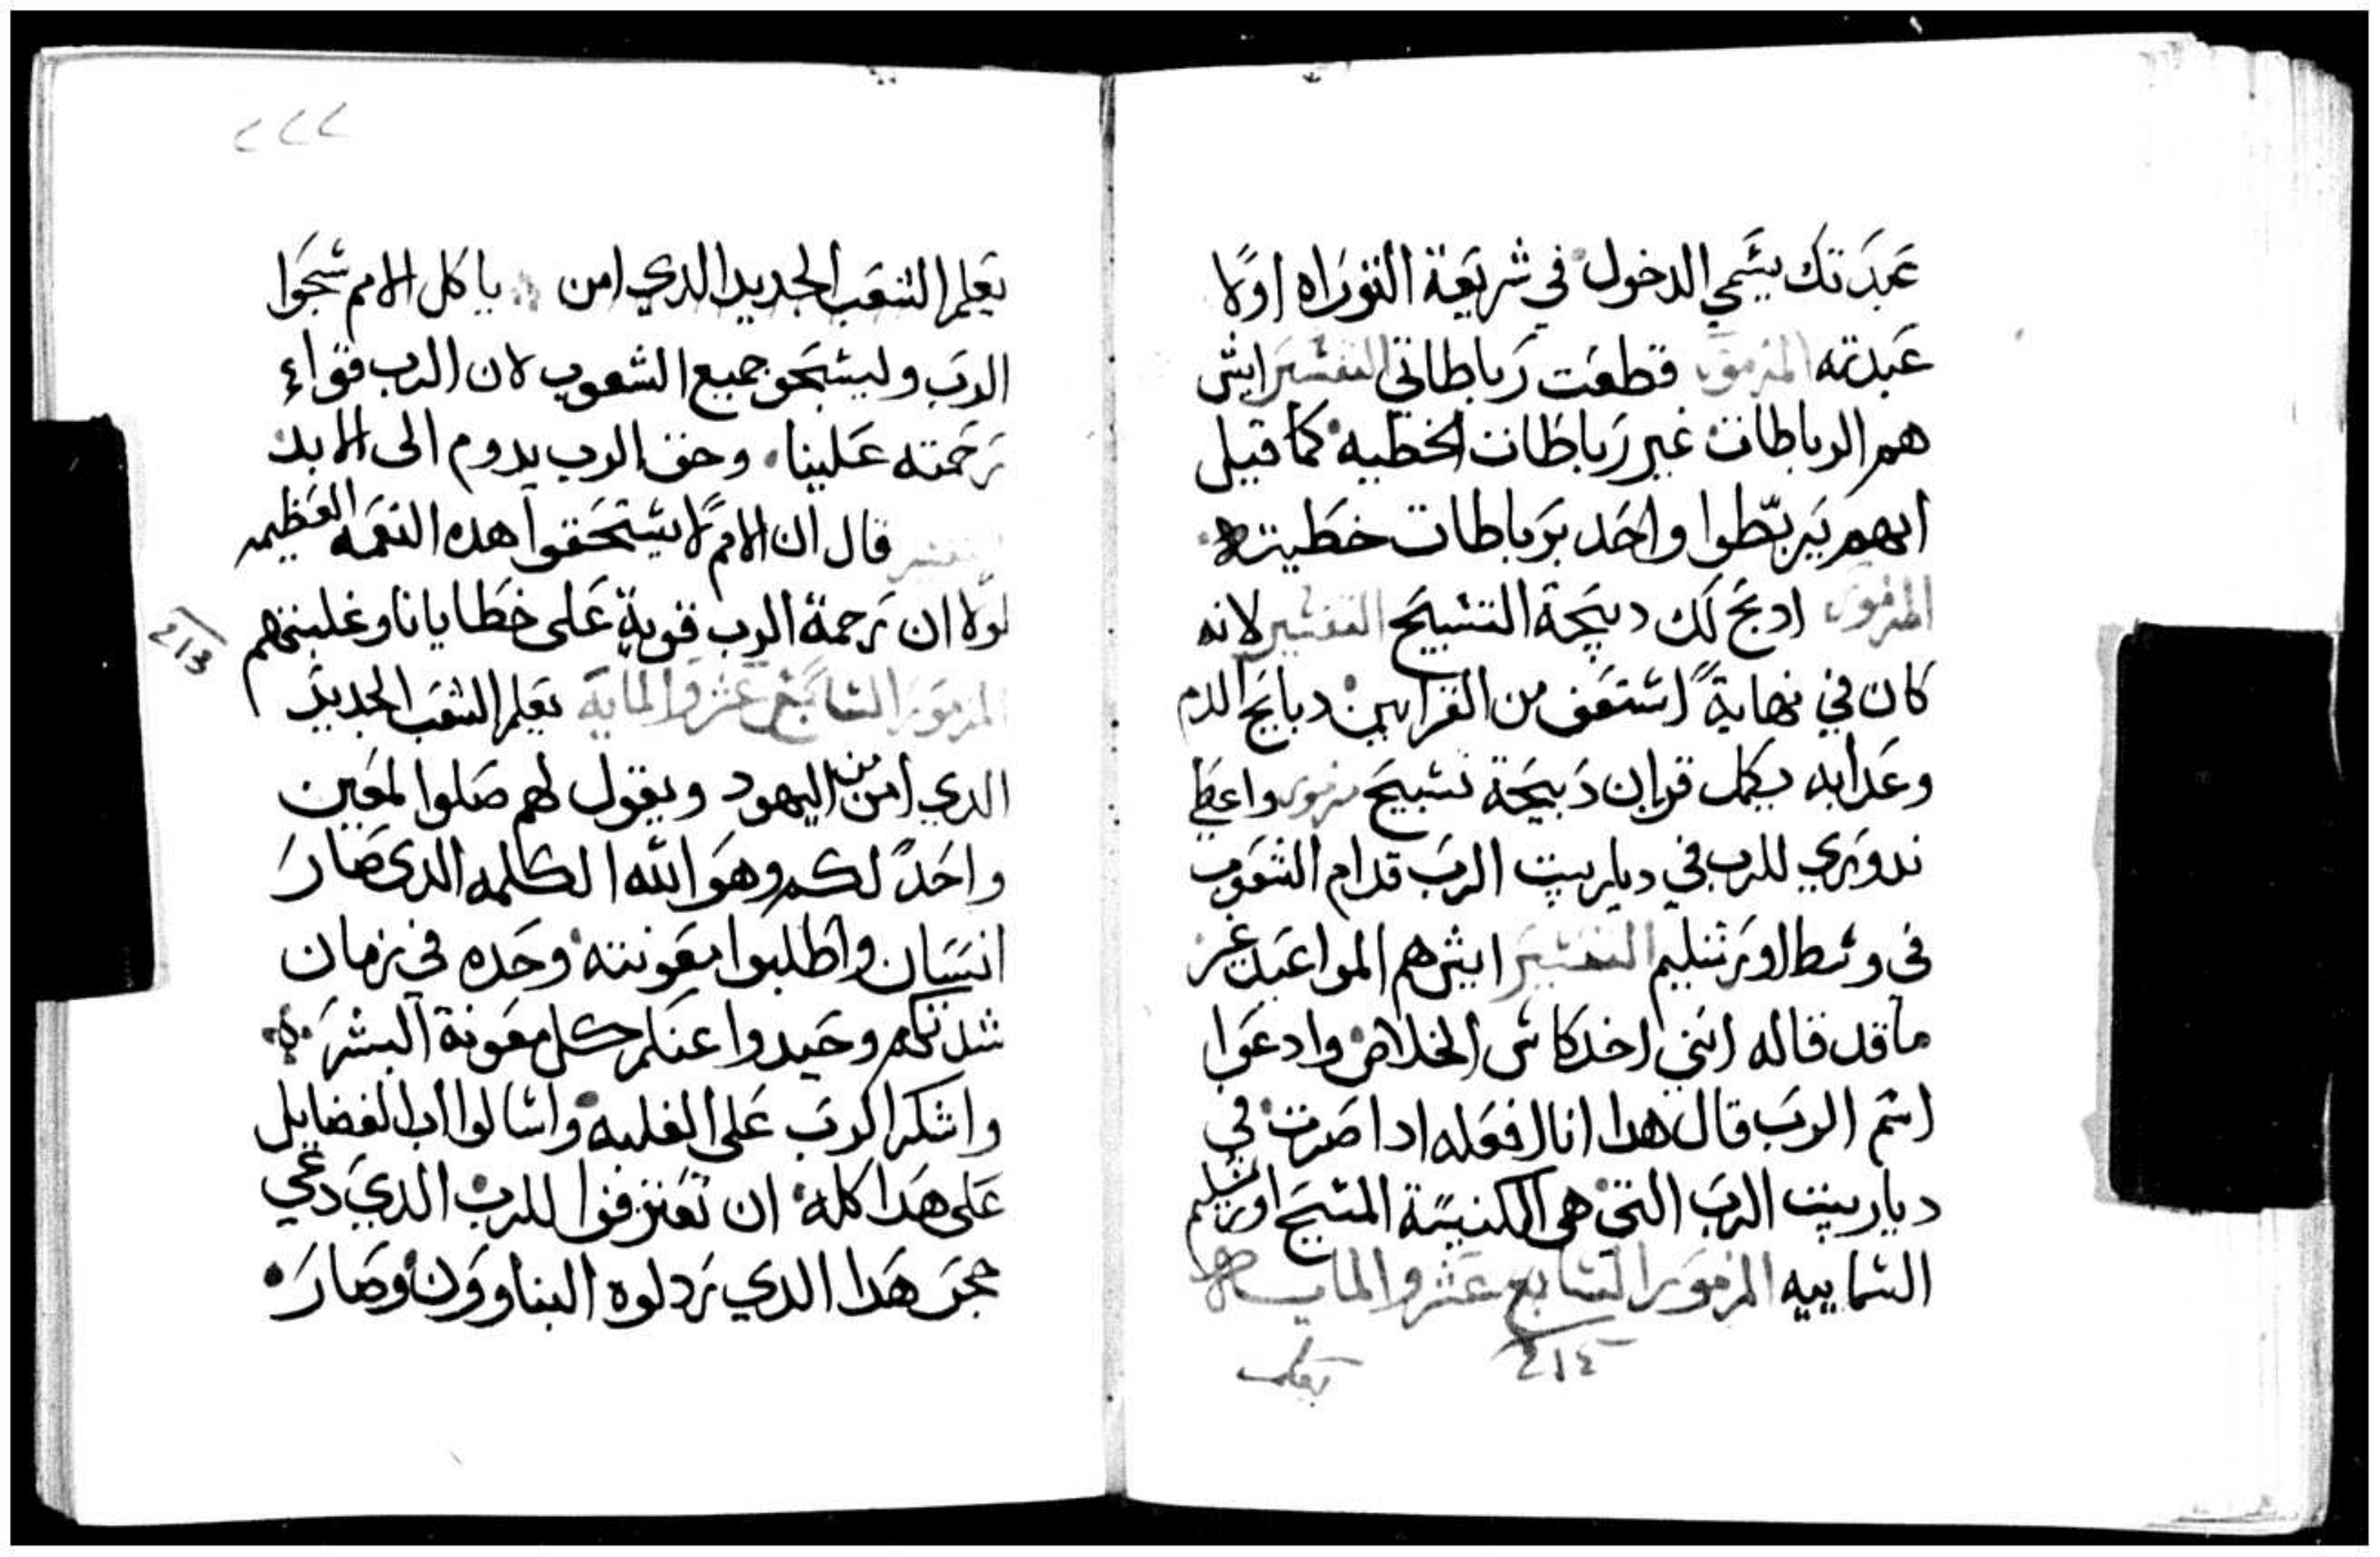 عبدتك يسمي الدخول في شريعة التوراه اولا
عبدته المزمور قطعت رباطاتي التفسير ايش
هم الرباطات غير رباطات الخطيه كما قيل
انهم يربطوا واحد برباطات خطيته
المزمور ادبح لك دبيحة التسبيح التفسير لانه
كان في نهاية استعف من القرابين دبايح الدم
وعدا به بكل قربان دبيحة تسبيح مزمور واعطي
ندوري للرب في ديار بيت الرب قدام الشعوب
في وسط اورشليم التفسير ايش هم المواعيد غير
ما قد قاله انني اخد كاس الخلاص وادعوا
اسم الرب قال هدا انا افعله ادا صرت في
ديار بيت الرب التي هي الكنيسة المسيح اورشليم
السماييه المزمور السابع عشر والمايه
٢١٤
يعلم
٢٢٢
يعلم الشعب الجديد الدي امن يا كل الامم سبحوا
الرب وليسبحو جميع الشعوب لان الرب قواء
رحمته علينا وحق الرب يدوم الى الابد
التفسير قال ان الامم لا يستحقوا هده النعمه العظيمه
لولا ان رحمة الرب قوية على خطايانا وغلبتهم
213
المزمور السابع عشر والماية يعلم الشعب الجديد
الدي امن من اليهود ويقول لهم صلوا لمعين
واحد لكم وهو الله الكلمه الدى صار
انسان واطلبوا معونته وحده في زمان
شدتكم وحيدوا عنكم كل معونة البشر
واشكر الرب على الغلبه واسالوا اب الفضايل
على هدا كله ان تعترفوا للرب الدي دعي
حجر هدا الدي ردلوه البناوون وصار